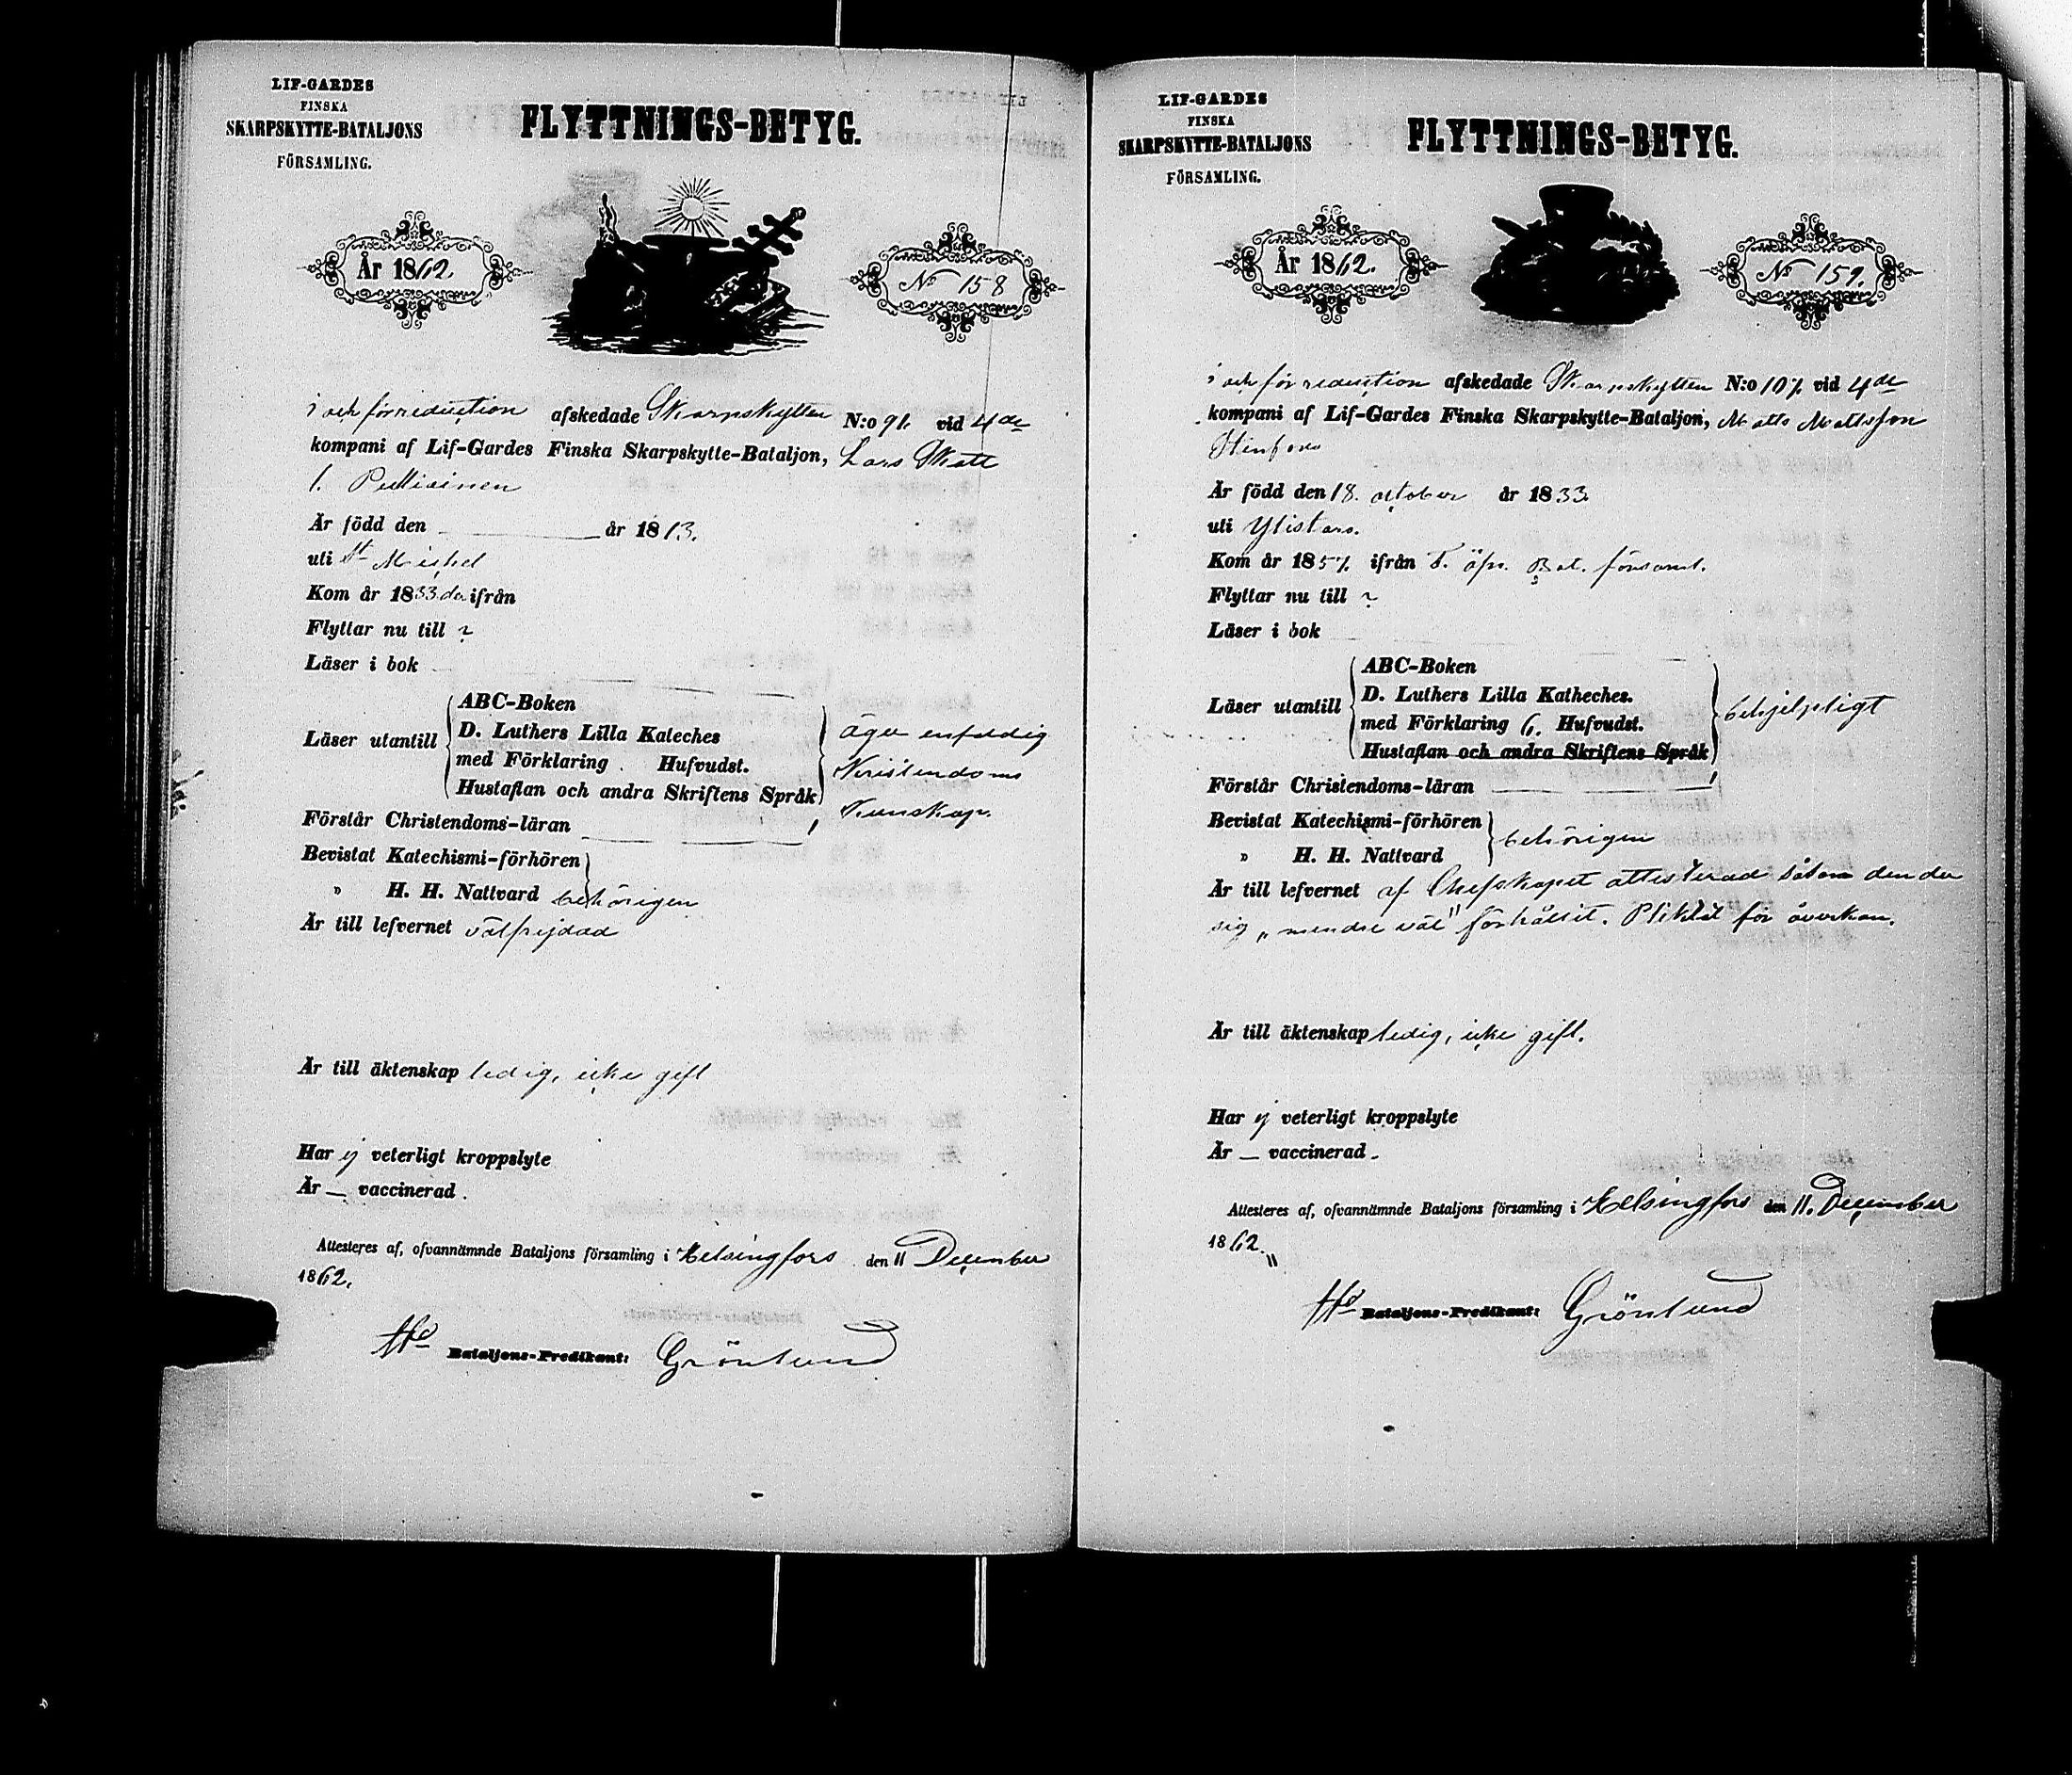 LIF-GARDES
FINSKA
SKARPSKYTTE-BATALJONS
FÖRSAMLING.
FLYTTNINGS-BETYG.
År 1862.
No 158
i och för reduction afskedade Skarpskytten N:o 91. vid 4de
kompani af Lif-Gardes Finska Skarpskytte-Bataljon, Lars Skott
l. Pulliainen
Är född den år 1813.
uti St Michel
Kom år 1833 ifrån
Flyttar nu till ?
Läser i bok
Läser utantill
ABC-Boken
D. Luthers Lilla Kateches
med Förklaring. Hufvudst.
Hustaflan och andra Skriftens Språk
äger enfaldig
Kristendoms
Kunskap.
Förstår Christendoms-läran
Bevistat Katechismi-förhören
" H. H. Nattvard behörigen
Är till lefvernet välfrejdad
Är till äktenskap ledig, icke gift
Har ej veterligt kroppslyte
Är — vaccinerad.
Attesteres af, ofvannämnde Bataljons församling i Helsingfors den 11 December
1862.
Bataljons-Predikant: Grönlund
LIF-GARDES
FINSKA
SKARPSKYTTE-BATALJONS
FÖRSAMLING.
FLYTTNINGS-BETYG.
År 1862.
No 159.
i och för reduction afskedade Skarpskytten N:o 107. vid 4de
kompani af Lif-Gardes Finska Skarpskytte-Bataljon, Matts Mattsson
Stenfors
Är född den 18. october år 1833.
uti Ylistaro.
Kom år 1857. ifrån F. öfn. Bat. församl.
Flyttar nu till ?
Läser i bok
Läser utantill
ABC-Boken
D. Luthers Lilla Katheches.
med Förklaring 6. Hufvudst.
Hustaflan och andra Skriftens Språk
behjelpligt
Förstår Christendoms-läran
Bevistat Katechismi-förhören
" H. H. Nattvard
behörigen
Är till lefvernet af Chefskapet attesterad såsom den der
sig "mindre väl" förhållit. Pliktat för åverkan.
Är till äktenskap ledig, icke gift.
Har ej veterligt kroppslyte
Är — vaccinerad.
Attesteres af, ofvannämnde Bataljons församling i Helsingfors den 11. December
1862.
Bataljons-Predikant: Grönlund